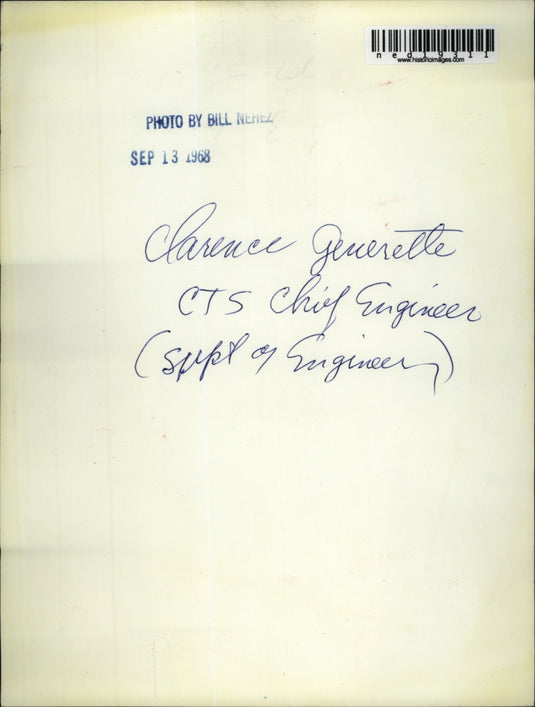 ned19311
www.historicimages.com
PHOTO BY BILL NEHEZ
SEP 13 1968
Clarence Generette
CTS Chief Engineer
(Supt of Engineer)